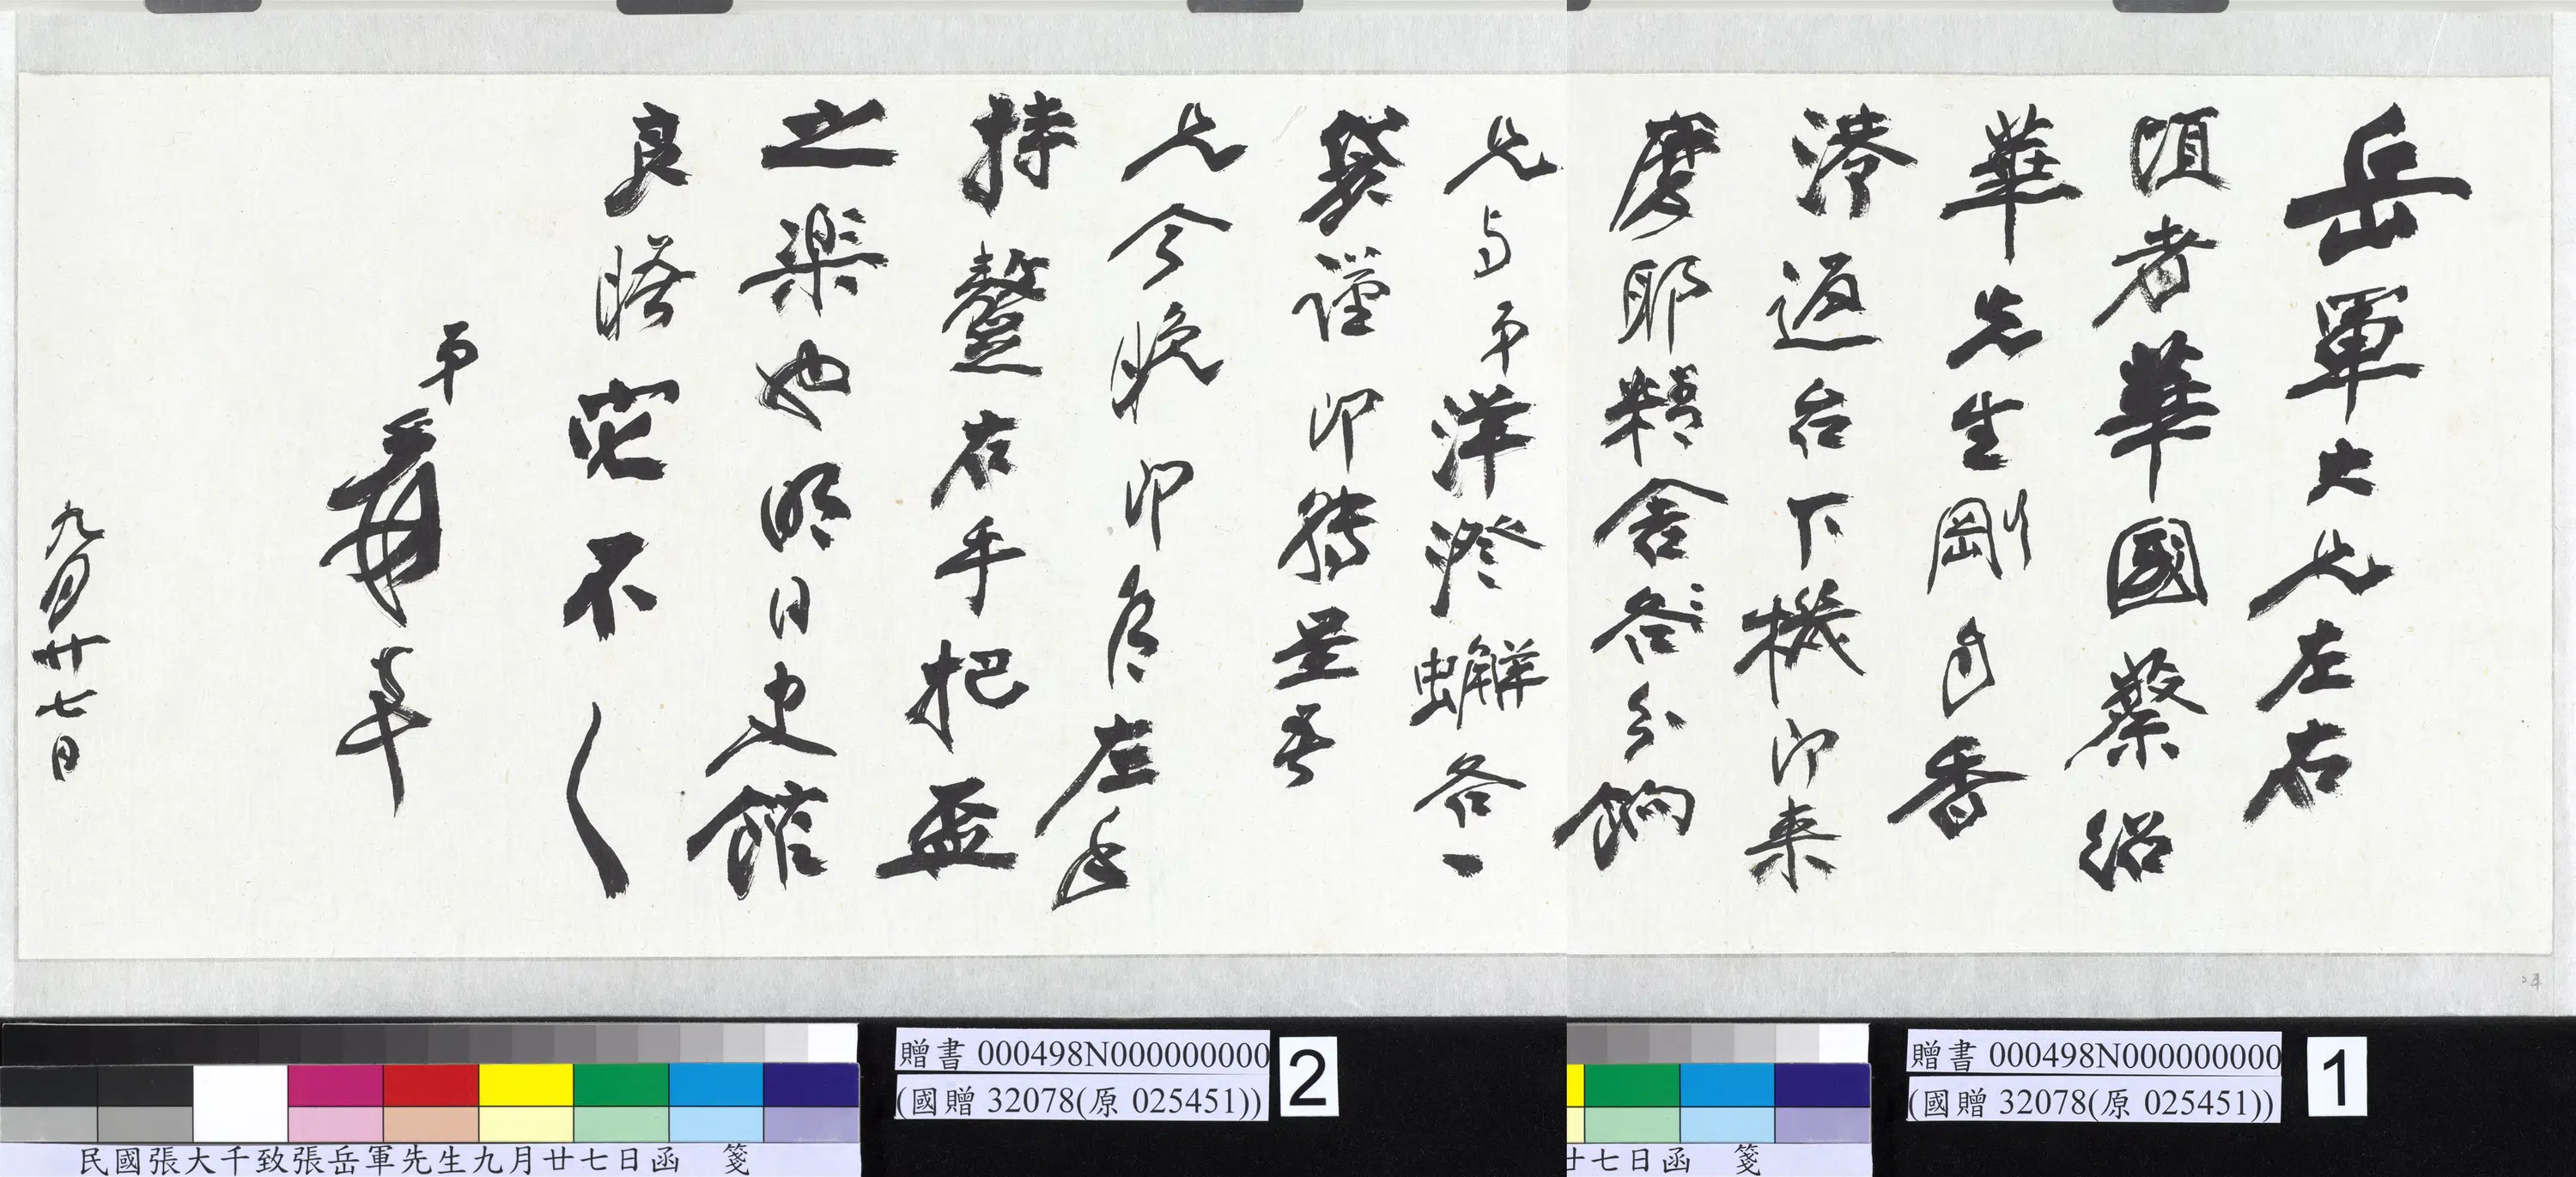 岳軍大兄左右
頃者華國蔡紹
華先生剛自香
港返台下機即来
摩耶精舍各分餉
兄与弟洋澄蠏各一
簍謹即轉呈吾
兄今晚即乞左手
持螯右手把盃
之樂也明日史館
良晤容不一
弟爰奉
九月廿七日
贈書 000498N000000000
(國贈 32078(原 025451))
1
贈書 000498N000000000
(國贈 32078(原 025451))
2
民國張大千致張岳軍先生九月廿七日函 箋
廿七日函 箋